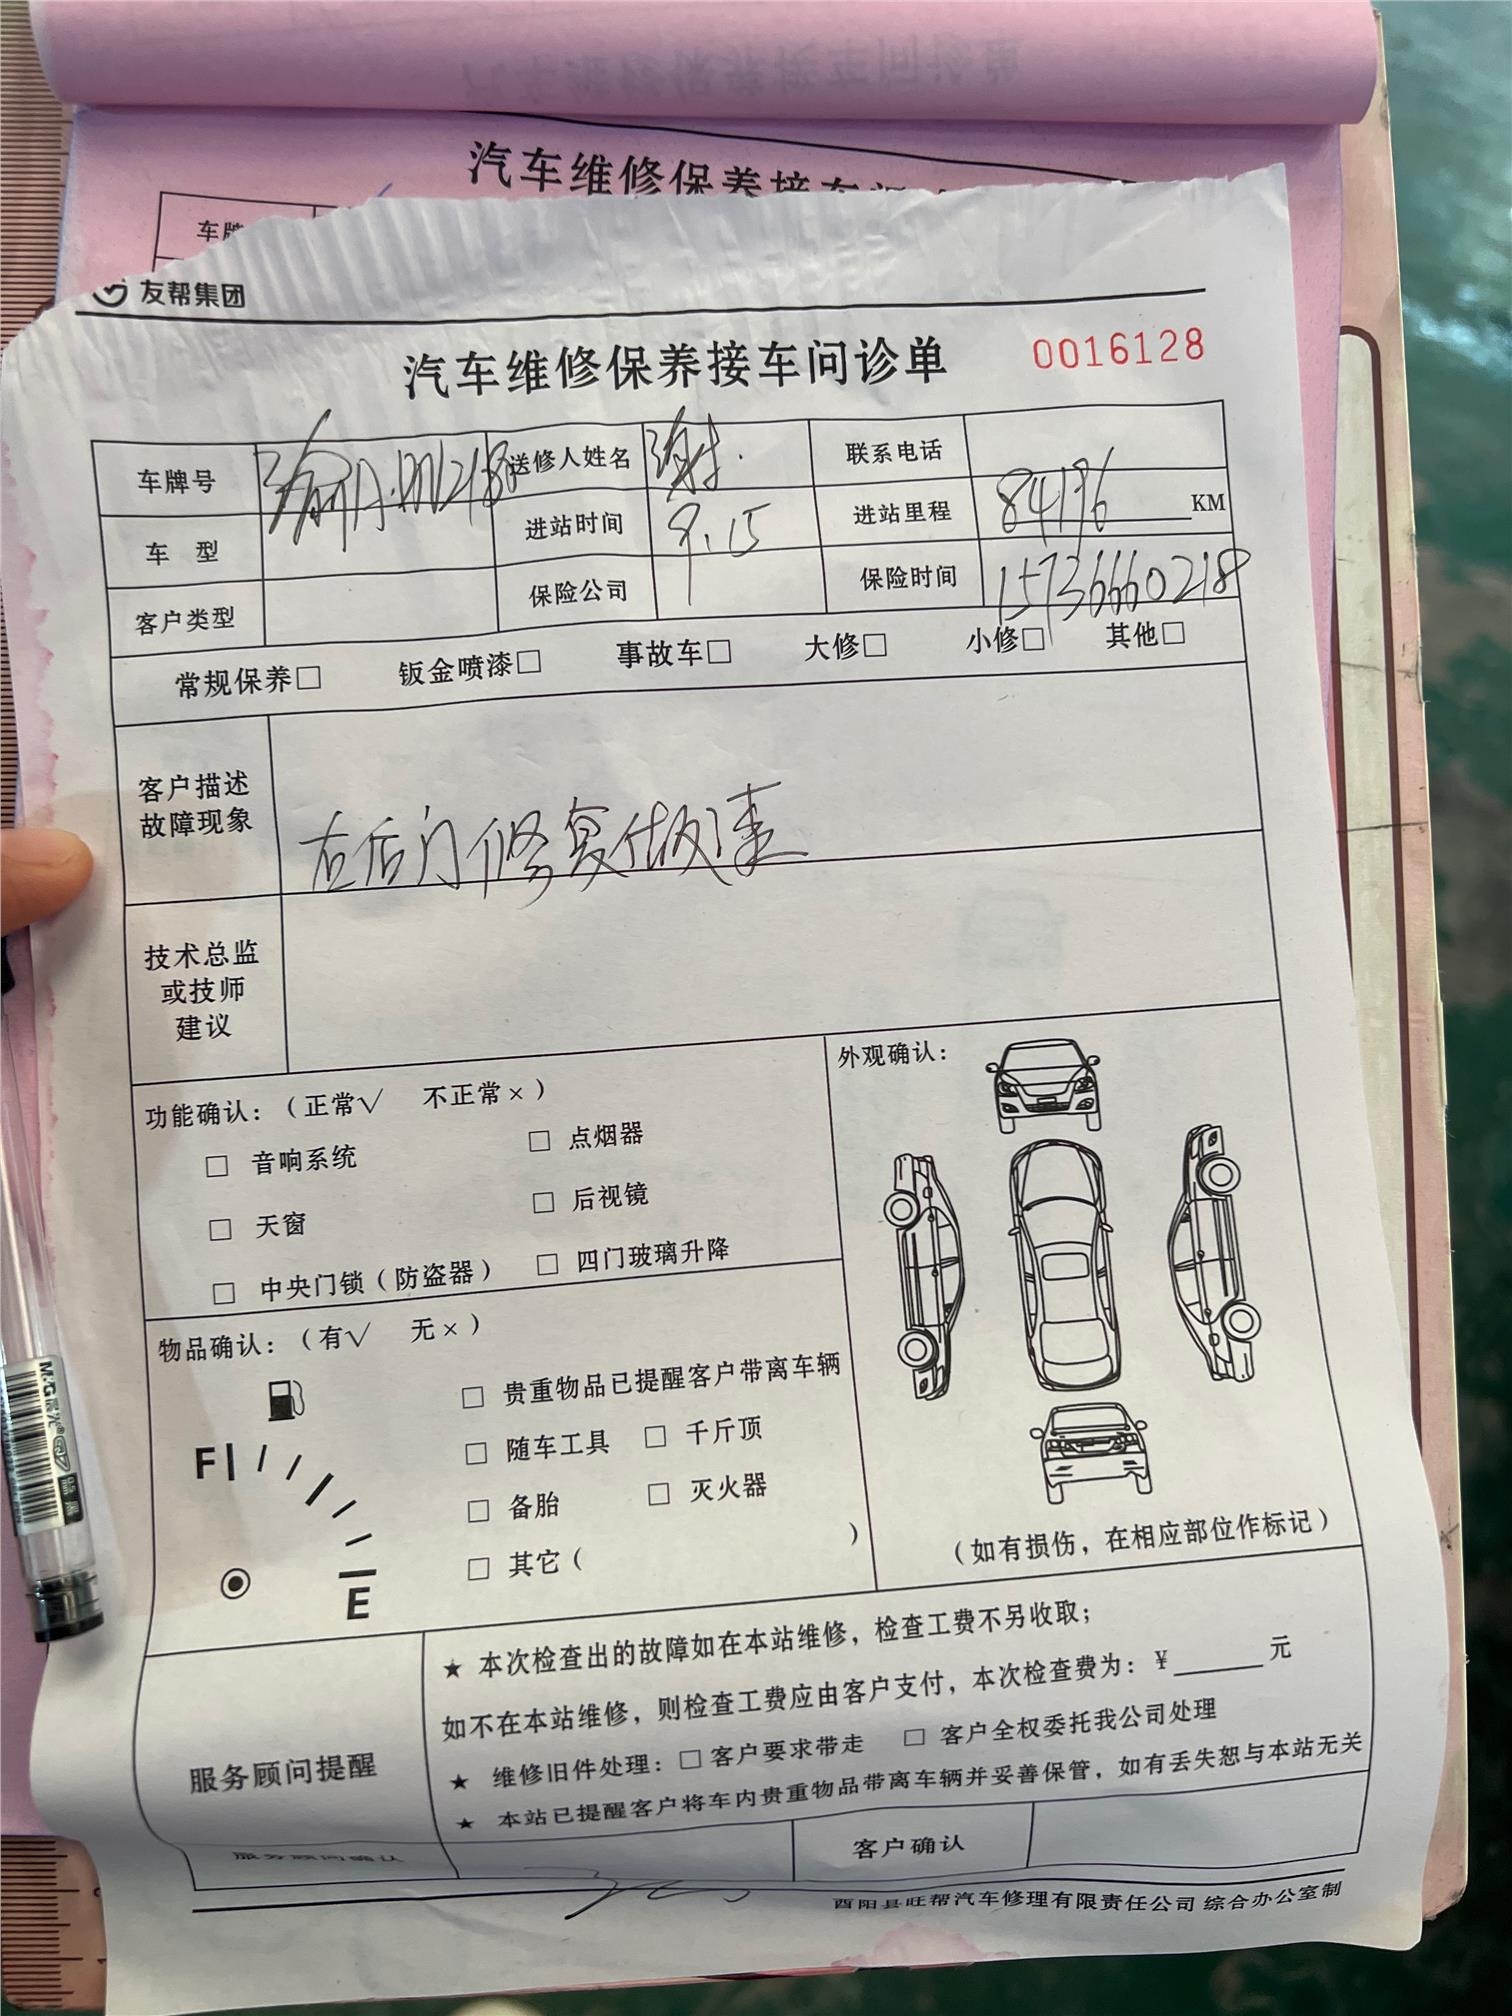 汽车维修保养接车
车牌
友帮集团
汽车维修保养接车问诊单 0016128
车牌号 送修人姓名 谢 联系电话
车 型 进站时间 9.15 进站里程 84196 KM
客户类型 保险公司 保险时间 15736660218
常规保养□ 钣金喷漆□ 事故车□ 大修□ 小修□ 其他□
客户描述
故障现象
右后门修复做漆
技术总监
或技师
建议
功能确认：（正常√ 不正常×）
□ 音响系统 □ 点烟器
□ 天窗 □ 后视镜
□ 中央门锁（防盗器） □ 四门玻璃升降
外观确认：
（如有损伤，在相应部位作标记）
物品确认：（有√ 无×）
□ 贵重物品已提醒客户带离车辆
□ 随车工具 □ 千斤顶
□ 备胎 □ 灭火器
□ 其它（ ）
F
E
服务顾问提醒
★ 本次检查出的故障如在本站维修，检查工费不另收取；
如不在本站维修，则检查工费应由客户支付，本次检查费为：¥______元
★ 维修旧件处理：□ 客户要求带走 □ 客户全权委托我公司处理
★ 本站已提醒客户将车内贵重物品带离车辆并妥善保管，如有丢失恕与本站无关
服务顾问确认 客户确认
酉阳县旺帮汽车修理有限责任公司 综合办公室制
M&G晨光